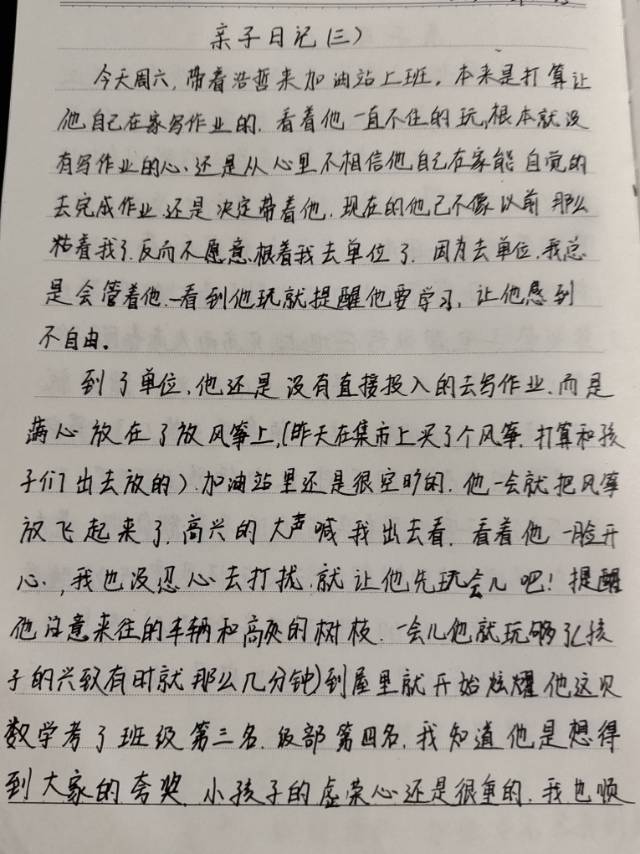 亲子日记(三)
今天周六,带着浩哲来加油站上班。本来是打算让
他自己在家写作业的.看着他一直不住的玩,根本就没
有写作业的心.还是从心里不相信他自己在家能自觉的
去完成作业.还是决定带着他.现在的他已不像以前那么
粘着我了.反而不愿意.根着我去单位了.因为去单位.我总
是会管着他.一看到他玩就提醒他要学习,让他感到
不自由.
到了单位,他还是没有直接投入的去写作业.而是
满心放在了放风筝上,(昨天在集市上买了个风筝.打算和孩
子们出去放的).加油站里还是很空旷的.他一会就把风筝
放飞起来了.高兴的大声喊我出去看.看着他一脸开
心.,我也没忍心去打扰.就让他先玩会儿吧!提醒
他注意来往的车辆和高处的树枝.一会儿他就玩够了(孩
子的兴致有时就那么几分钟)到屋里就开始炫耀他这次
数学考了班级第三名.级部第四名.我知道他是想得
到大家的夸奖.小孩子的虚荣心还是很重的.我也顺